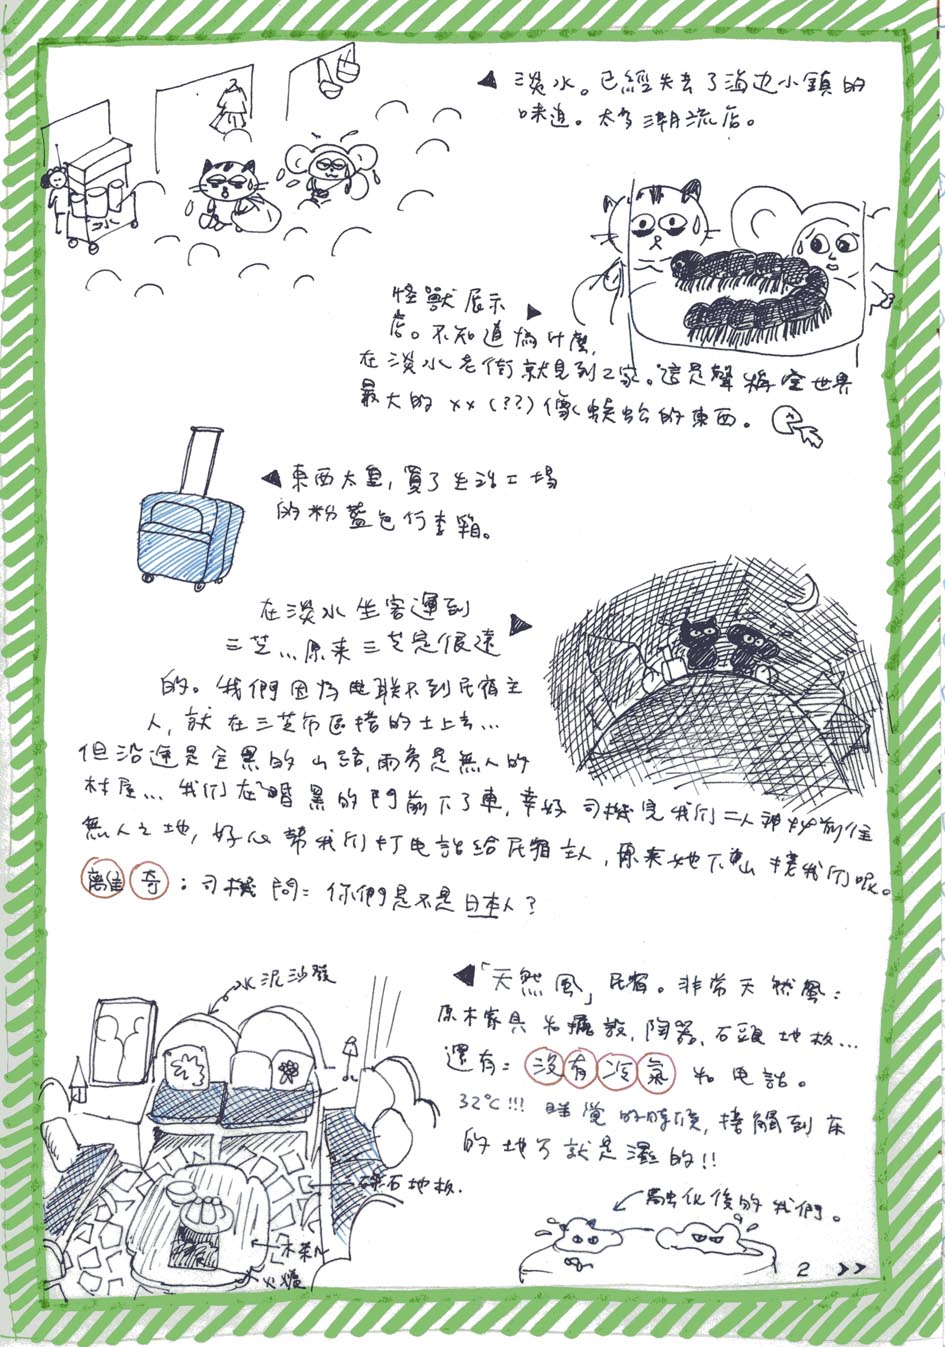 淡水。已經失去了海边小鎮的
味道。太多潮流店。
冰
怪獸展示
店。不知道為什麼,
在淡水老街就見到2家。這是聲稱全世界
最大的xx(??)像蜈蚣的東西。
東西太重,買了生活工場
的粉藍色行李箱。
在淡水坐客運到
三芝...原來三芝是很遠
的。我們因為电联不到民宿主
人,就在三芝市區搭的士上去...
但沿途是全黑的山路,兩旁是無人的
村屋...我们在暗黑的門前下了車,幸好司機見我们二人
無人之地,好心幫我们打电話給民宿主人,原來她下山接我们呢。
離奇:司機問:你們是不是日本人?
水泥沙發
「天然風」民宿。非常天然風:
原木家具和擺設,陶器,石頭地板...
還有:沒有冷氣和电話。
32℃!!! 睡覺的時候,接觸到床
的地方就是濕的!!
碎石地板.
木柴
火爐
融化後的我們。
2 >>